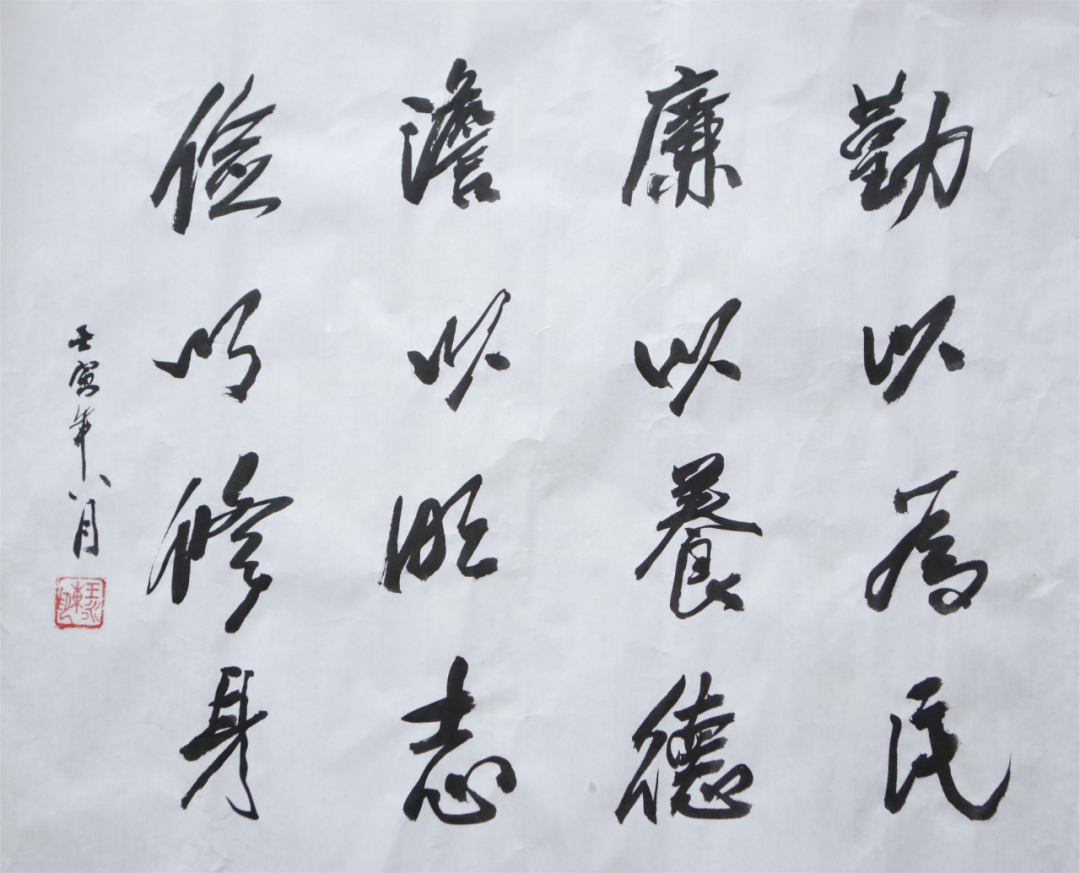 勤以為民
廉以養德
澹以明志
儉以修身
壬寅年八月